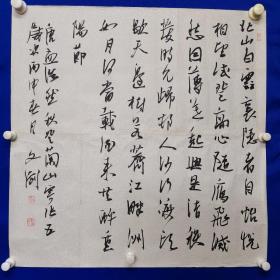 北山白雲裏隱者自怡悦
相望試登高心隨雁飛滅
愁因薄暮起興是清秋
發時見歸村人沙行渡頭
歇天邊樹若薺江畔洲
如月何當載酒來共醉重
陽節
唐孟浩然秋登蘭山寄張五
歲次丙申春月文